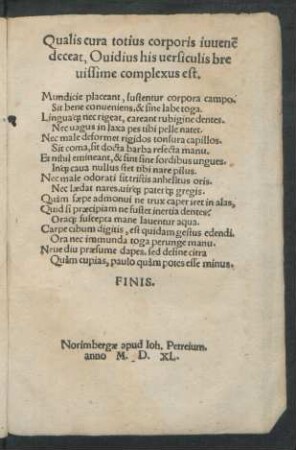 Qualis cura totius corporis iuuenẽ
deceat, Ouidius his uersiculis bre
uissime complexus est.
Mundicie placeant, fustentur corpora campo.
Sit bene conueniens, & sine labe toga.
Linguaq; nec rigeat, careant rubigine dentes.
Nec uagus in laxa pes tibi pelle natet.
Nec male deformet rigidos tonsura capillos.
Sit coma, sit docta barba resecta manu.
Et nihil emineant, & sint sine sordibus ungues.
Inq; caua nullus stet tibi nare pilus.
Nec male odorati sit tristis anhelitus oris.
Nec lædat nares uirq; paterq; gregis.
Quàm sæpe admonui ne trux caper iret in alas,
Quid si præcipiam ne fuscet inertia dentes?
Oraq; suscepta mane lauentur aqua.
Carpe cibum digitis, est quidam gestus edendi.
Ora nec immunda toga perunge manu.
Neue diu præsume dapes, sed desine citra
Quàm cupias, paulo quàm potes esse minus.
FINIS.
Norimbergæ apud Ioh. Petreium.
anno M. D. XL.